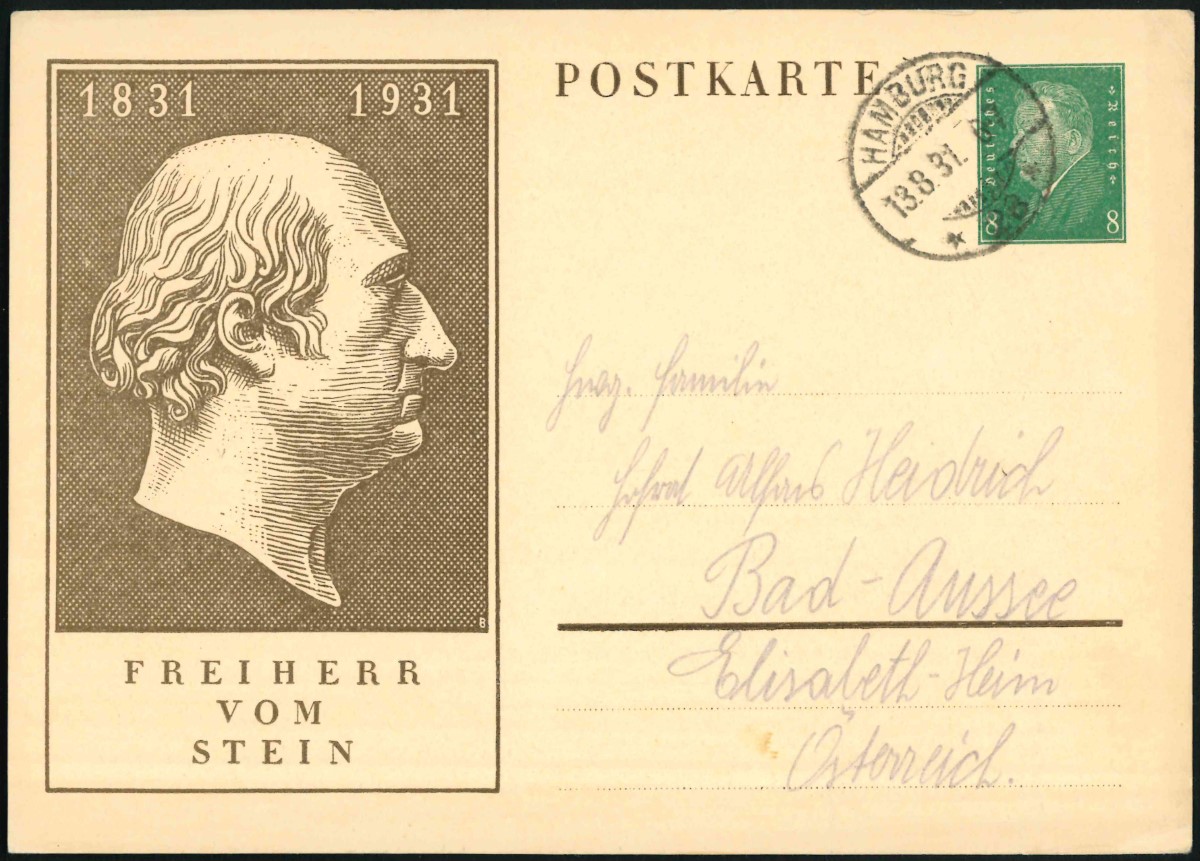 1831 1931
FREIHERR
VOM
STEIN
B
POSTKARTE
HAMBURG
13.8.31.
Deutsches Reich
8 8
Familie
Hofrat Alfons Heidrich
Bad-Aussee
Elisabeth-Heim
Österreich.